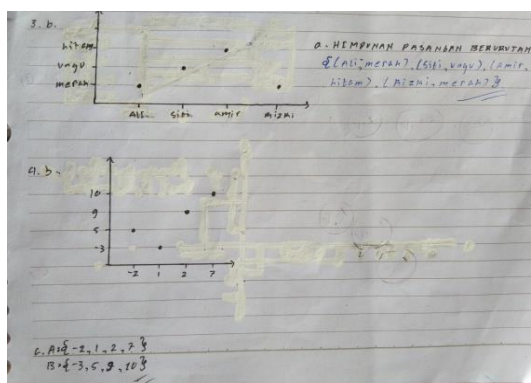 3. b.
hitam
ungu
merah
Ali siti amir Rizki
a. HIMPUNAN PASANGAN BERURUTAN
{(Ali, merah), (siti, ungu), (amir,
hitam), (Rizki, merah)}
4. b.
10
9
5
-3
-2 1 2 7
c. A={-2, 1, 2, 7}
B={-3, 5, 9, 10}